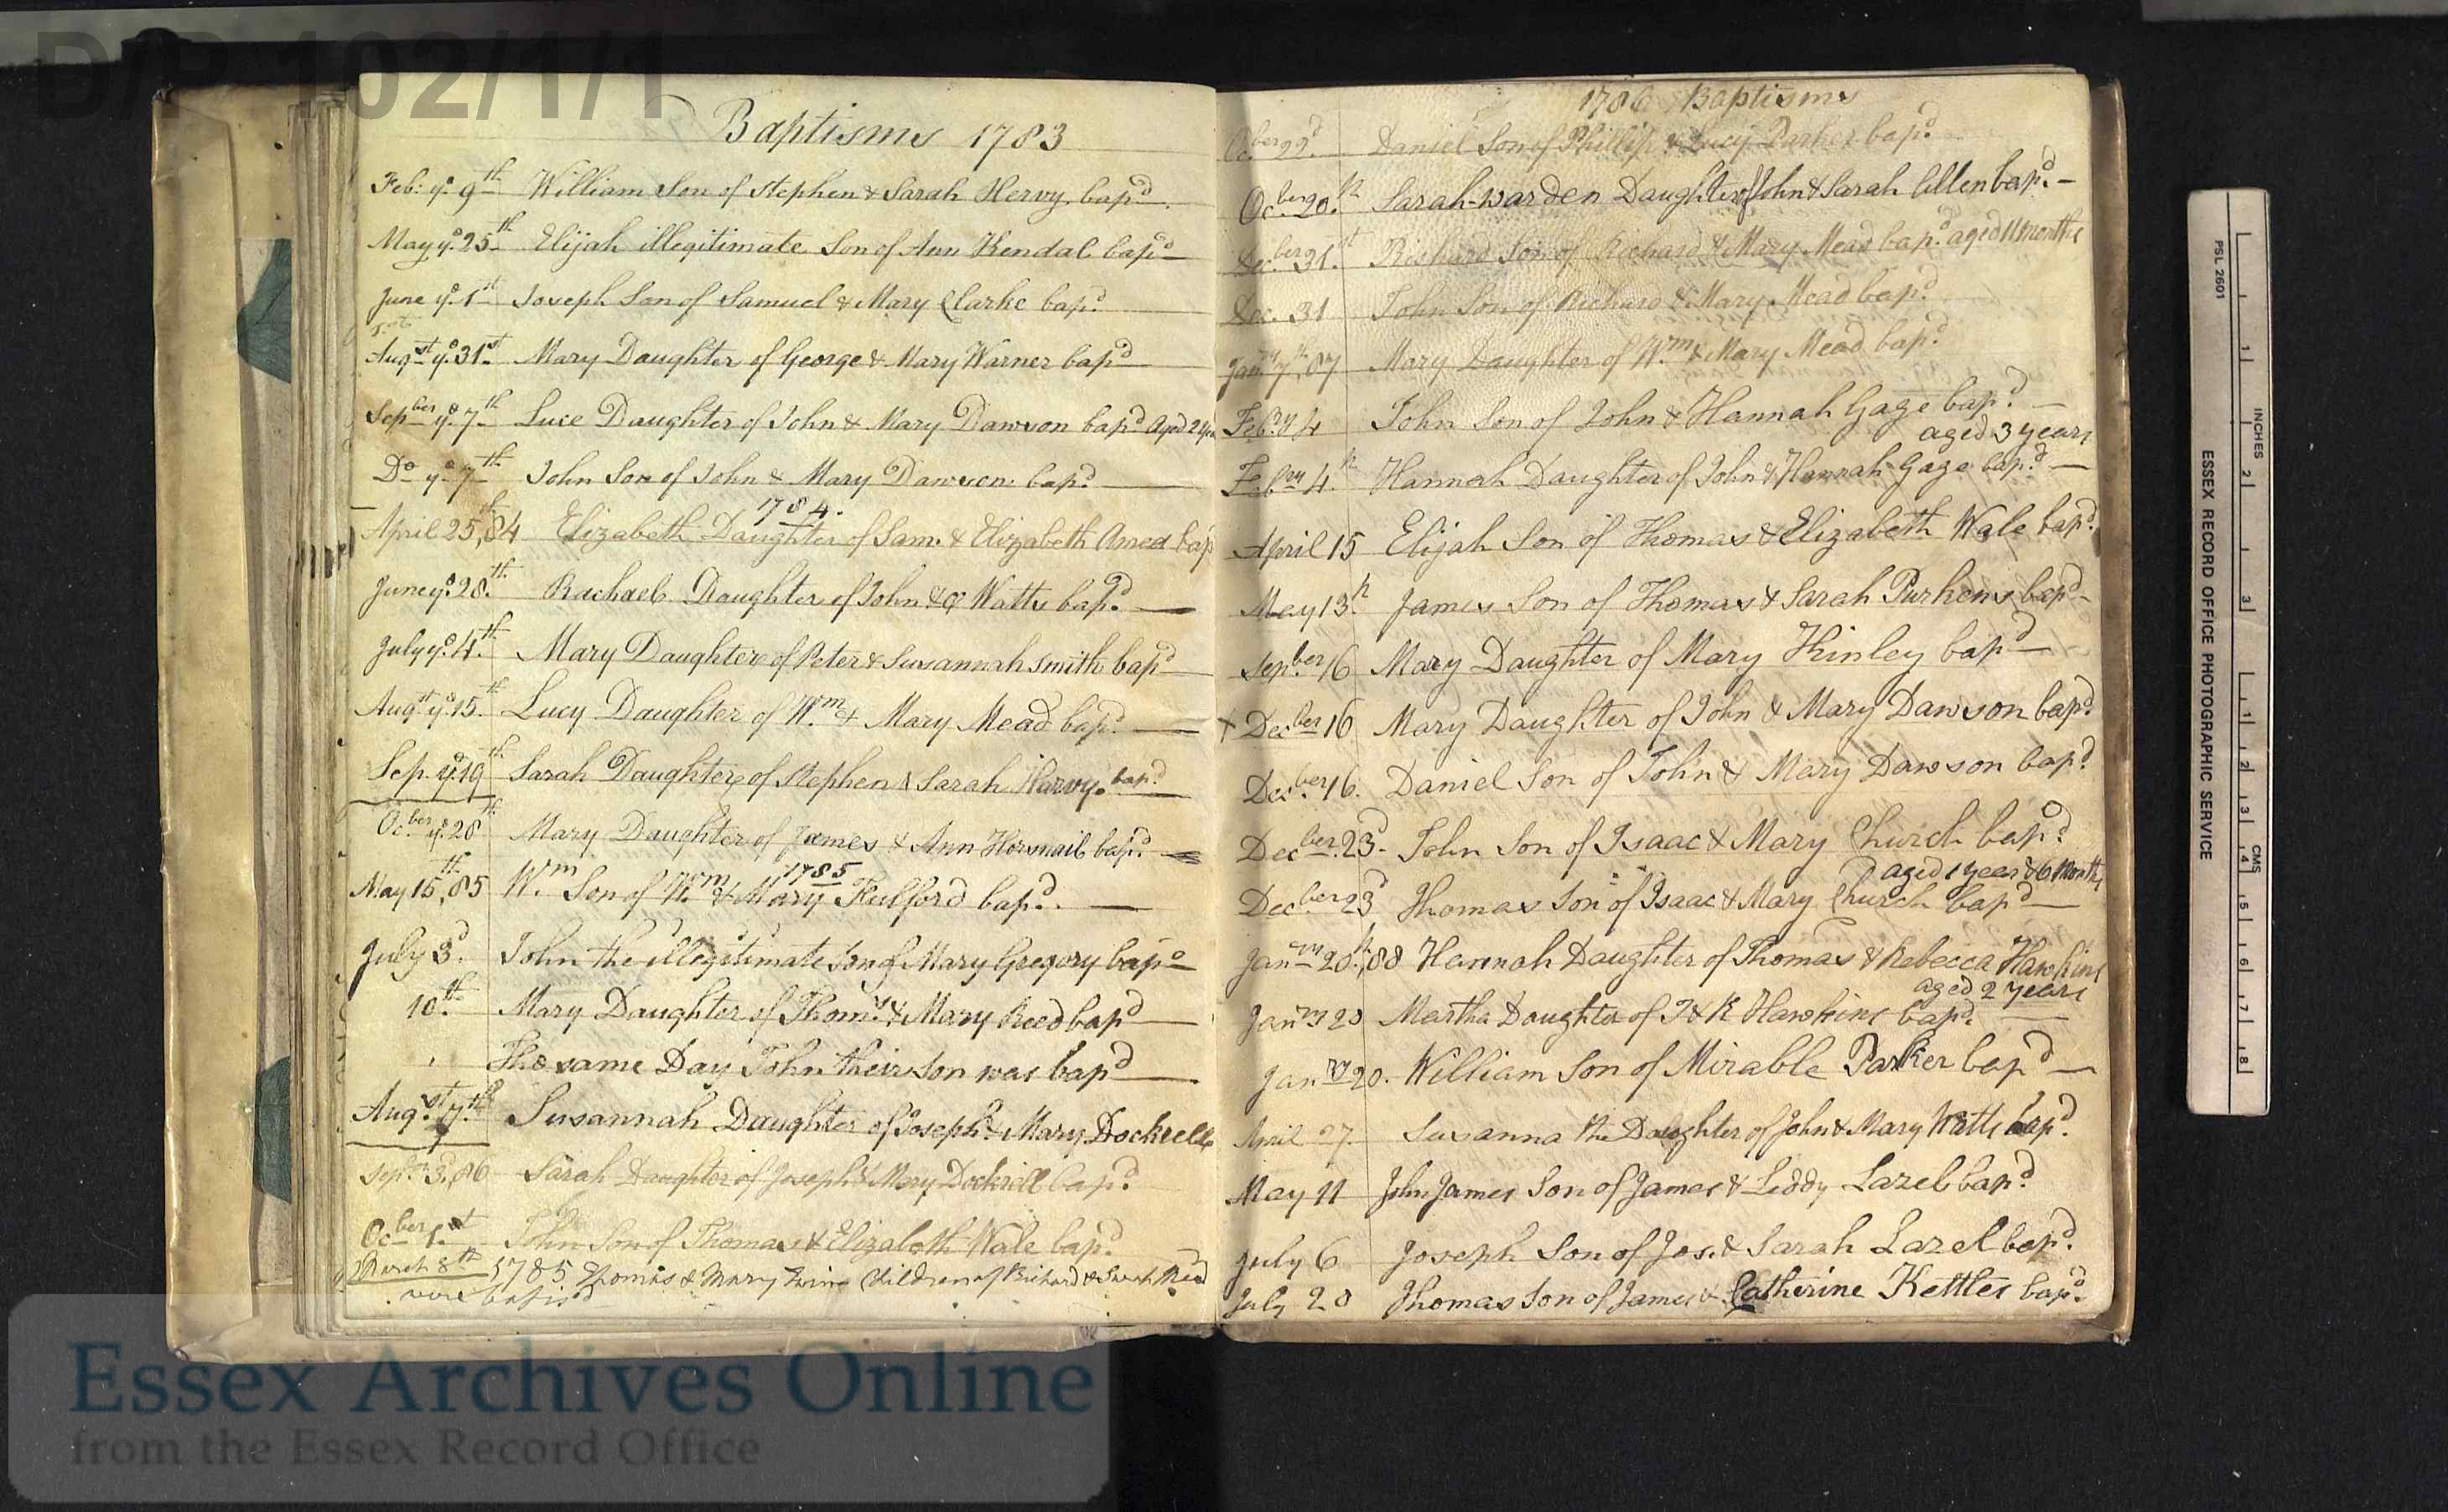 D/P 102/1/1
Baptisms 1783
Feb: ye 9th William Son of Stephen & Sarah Hervy bapd
May ye 25th Elijah illegitimate Son of Ann Kendal bapd
June ye 1st Joseph Son of Samuel & Mary Clarke bapd
Augst ye 31st Mary Daughter of George & Mary Warner bapd
Sepber ye 7th Luce Daughter of John & Mary Dawson bapd Aged 2 yrs
Do ye 7th John Son of John & Mary Dawson bapd
1784.
April 25th, 84 Elizabeth Daughter of Sam. & Elizabeth bap
June ye 28th Rachael Daughter of John & Watts bapd
July ye 4th Mary Daughter of Peter & Susannah Smith bapd
Augst ye 15th Lucy Daughter of Wm & Mary Mead bapd
Sep. ye 19th Sarah Daughter of Stephen & Sarah Harvy bapd
Ocber ye 28th Mary Daughter of James & Ann Hornsail bapd
1785
May 15th, 85 Wm Son of Wm & Mary Fulford bapd
July 3d John the illegitimate Son of Mary Gregory bapd
10th Mary Daughter of Thoms & Mary Reed bapd
The same Day John their Son was bapd
Augst 7th Susannah Daughter of Joseph & Mary Dockrell
Sepr 3d, 86 Sarah Daughter of Joseph & Mary Dockrill bapd
Ocber 1st John Son of Thomas & Elizabeth Wale bapd
March 8th 1785 Thomas & Mary Children of Richard & Sarah Mead
were
1786 Baptisms
Ocber 22d Daniel Son of Phillip & Lucy Parker bapd
Ocber 20th Sarah-warden Daughter of John & Sarah Allen bapd
Decber 31st Richard Son of Richard & Mary Mead bapd aged 11 months
Dec. 31 John Son of Richard & Mary Mead bapd
Janry 7th, 87 Mary Daughter of Wm & Mary Mead bapd
Febry 4 John Son of John & Hannah Gage bapd
aged 3 years
Febry 4th Hannah Daughter of John & Hannah Gage bapd
April 15 Elijah Son of Thomas & Elizabeth Wale bapd
May 13th James Son of Thomas & Sarah Purkens bapd
Sepber 16 Mary Daughter of Mary Kinley bapd
+ Decber 16 Mary Daughter of John & Mary Dawson bapd
Decber 16. Daniel Son of John & Mary Dawson bapd
Decber 23d John Son of Isaac & Mary Church bapd
aged 1 year & 6 Months
Decber 23d Thomas Son of Isaac & Mary Church bapd
Janry 20th, 88 Hannah Daughter of Thomas & Rebecca Hawkins
aged 2 years
Janry 20 Martha Daughter of T & R Hawkins bapd
Janry 20. William Son of Mirable Parker bapd
April 27. Susanna the Daughter of John & Mary Watts bapd
May 11 John James Son of James & Liddy Lazel bapd
July 6 Joseph Son of Jos. & Sarah Lazel bapd
July 20 Thomas Son of James & Catherine Kettler bapd
PSL 2601
ESSEX RECORD OFFICE PHOTOGRAPHIC SERVICE
INCHES
1
2
3
CMS
1
2
3
4
5
6
7
8
Essex Archives Online
from the Essex Record Office